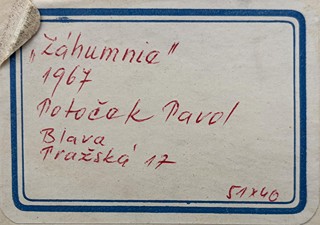 „Záhumnie"
1967
Potoček Pavol
Blava
Pražská 17
51x40